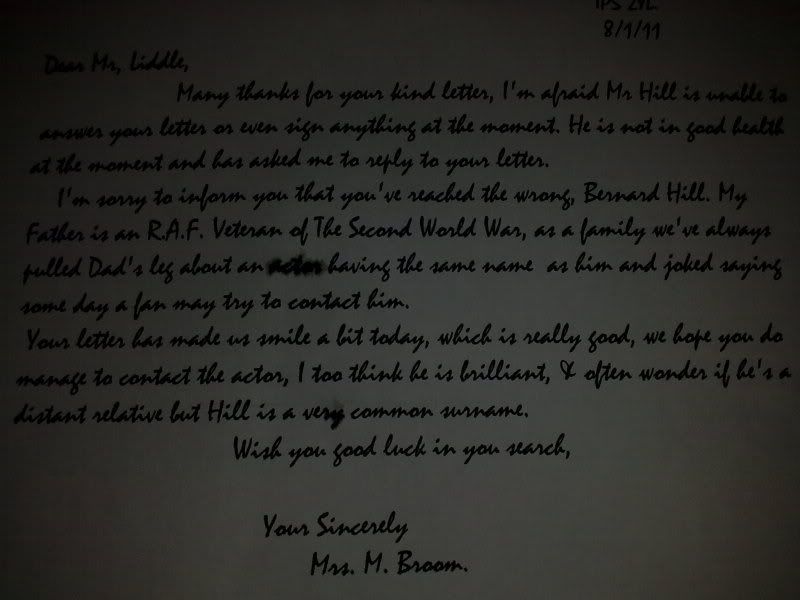 8/1/11
Dear Mr, Liddle,
Many thanks for your kind letter, I'm afraid Mr Hill is unable to
answer your letter or even sign anything at the moment. He is not in good health
at the moment and has asked me to reply to your letter.
I'm sorry to inform you that you've reached the wrong, Bernard Hill. My
Father is an R.A.F. Veteran of The Second World War, as a family we've always
pulled Dad's leg about an actor having the same name as him and joked saying
some day a fan may try to contact him.
Your letter has made us smile a bit today, which is really good, we hope you do
manage to contact the actor, I too think he is brilliant, & often wonder if he's a
distant relative but Hill is a very common surname.
Wish you good luck in you search,
Your Sincerely
Mrs. M. Broom.